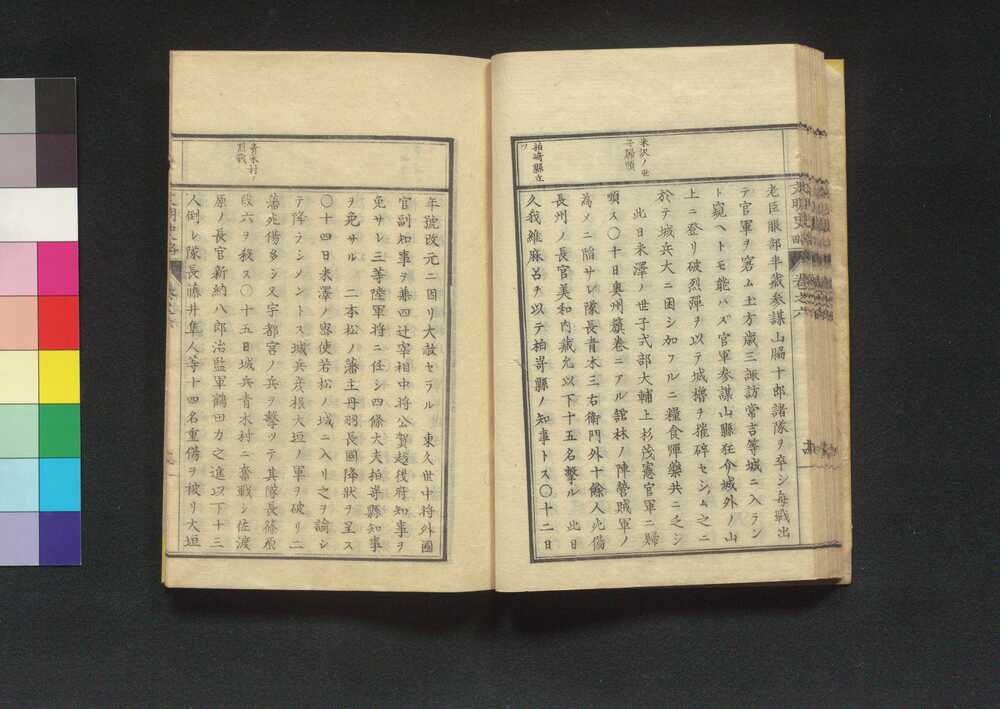 米沢ノ世
子歸順
柏崎縣立
ツ
老臣服部半蔵参謀山脇十郎諸隊ヲ卒シ毎戦出
テ官軍ヲ窘ム土方歳三諏訪常吉等城ニ入ラン
ト窺ヘトモ能ハズ官軍参謀山縣狂介城外ノ山
上ニ登リ破烈彈ヲ以テ城櫓ヲ摧碎セシム之ニ
於テ城兵大ニ困シ加フルニ糧食彈藥共ニ乏シ
此日米澤ノ世子式部大輔上杉茂憲官軍ニ歸
順ス〇十日奥州簱巻ニアル舘林ノ陣營賊軍ノ
為メニ陥サレ隊長青木三右衛門外十餘人死傷
長州ノ長官美和内蔵允以下十五名撃ル 此日
久我維麻呂ヲ以テ柏嵜縣ノ知事トス〇十二日
文明史略 巻之六
青木村ノ
烈戰
年號改元ニ因リ大赦セラル 東久世中将外國
官副知事ヲ兼四辻宰相中将公賀越後府知事ヲ
免サレ三等陸軍将ニ任シ四條大夫柏嵜縣知事
ヲ免サル 二本松ノ藩主丹羽長國降状ヲ呈ス
〇十四日米澤ノ軍使若松ノ城ニ入リ之ヲ諭シ
テ降ラシメントス城兵彦根大垣ノ軍ヲ破リ二
藩死傷多シ又宇都宮ノ兵ヲ撃ッテ其隊長篠原
六ヲ殺ス〇十五日城兵青木村ニ奮戰シ佐渡
原ノ長官新納八郎治監軍鶴田力之進以下十三
人倒レ隊長藤井隼人等卜四名重傷ヲ被リ大垣